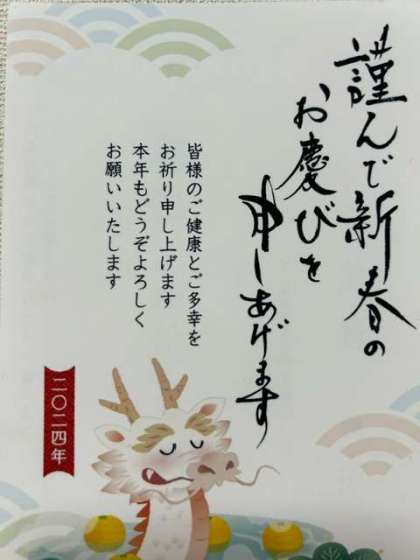 謹んで新春の
お慶びを
申しあげます
皆様のご健康とご多幸を
お祈り申し上げます
本年もどうぞよろしく
お願いいたします
二〇二四年